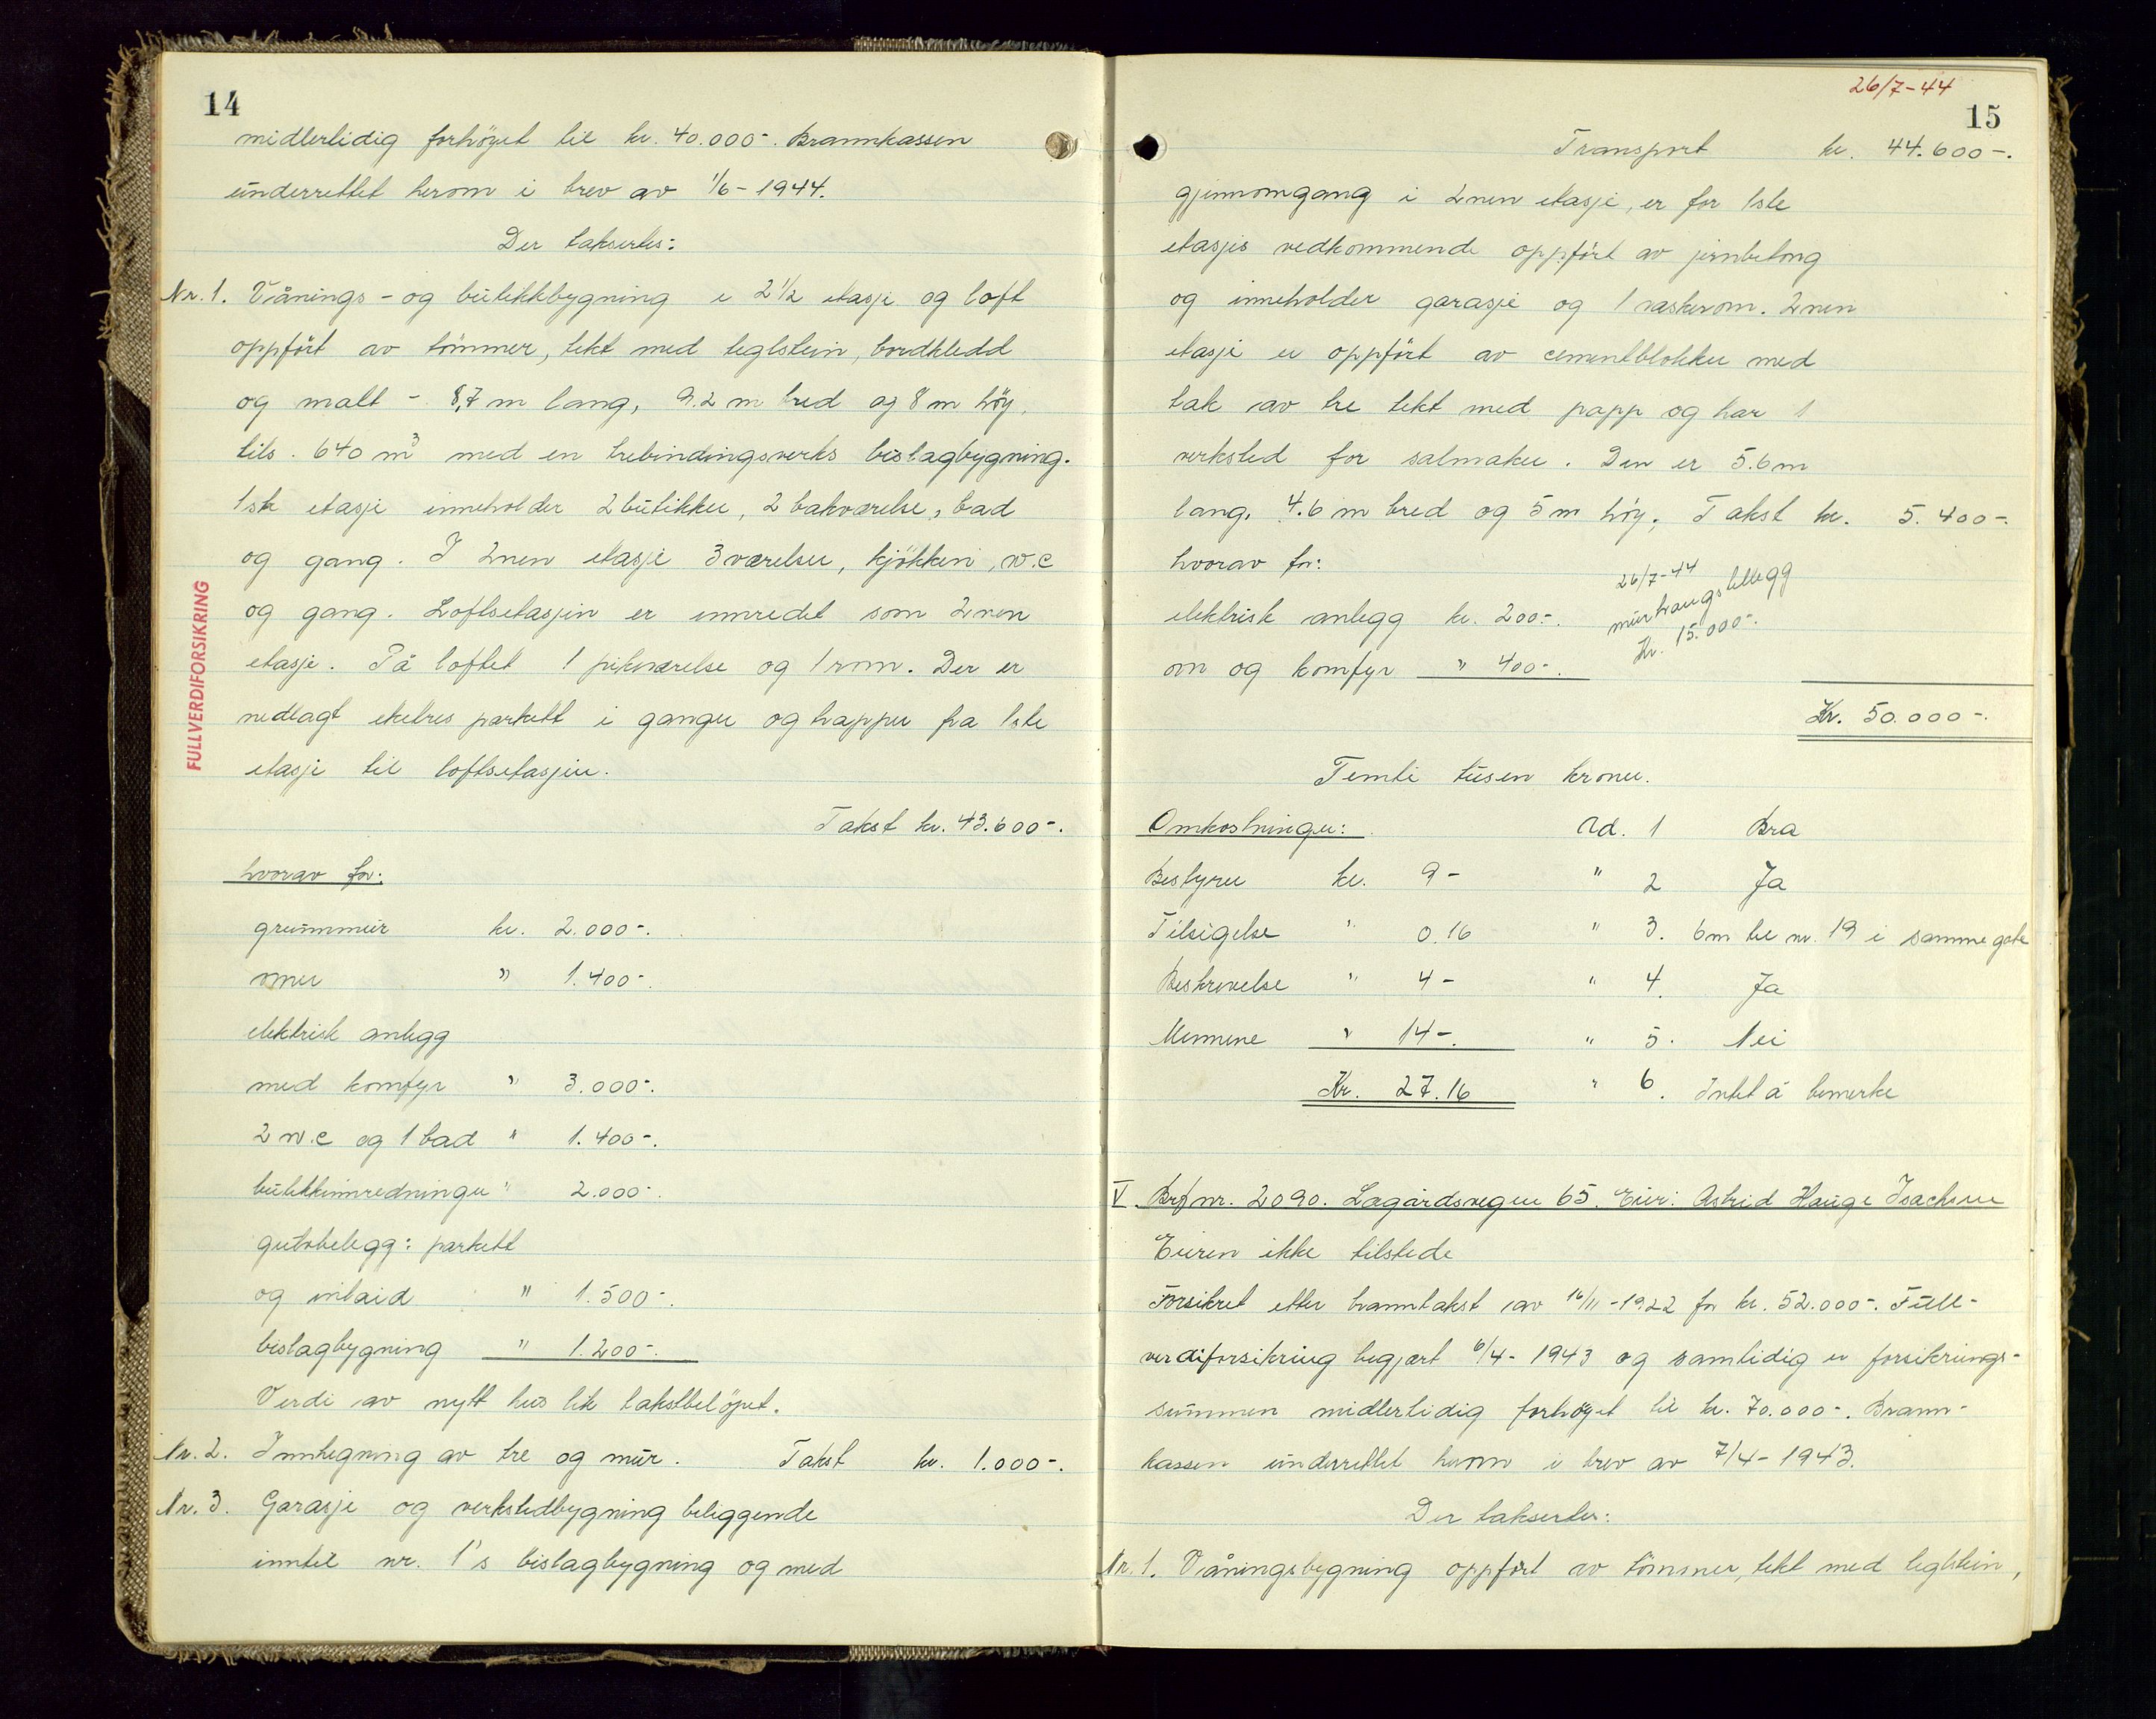 14
midlertidig forhöyet til kr. 40.000-. Brannkassen
underrettet herom i brev av 1/6-1944.
Der takseres:
Nr. 1. Vånings- og butikkbygning i 2 1/2 etasje og loft
oppfört av tömmer, tekt med teglstein, bordkledd
og malt - 8,7 m lang, 9.2 m bred og 8 m höy.
tils. 640 m³ med en trebindingsverks bislagbygning.
1ste etasje inneholder 2 butikker, 2 bakværelse, bad
og gang. I 2nen etasje 3 værelser, kjökken, w.c
og gang. Loftsetasjen er innredet som 2nen
etasje. På loftet 1 pikeværelse og 1 rom. Der er
nedlagt ekebres parkett i ganger og trapper fra 1ste
etasje til loftsetasjen.
FULLVERDIFORSIKRING
Takst kr. 43.600-.
hvorav for:
grunnmur kr. 2.000-.
omer " 1.400-.
elektrisk anlegg
med komfyr " 3.000-.
2 w.c og 1 bad " 1.400-.
butikkinnredninger " 2.000-.
gulvbelegg: parkett
og inlaid " 1.500-.
bislagbygning " 1.200-.
Verdi av nytt hus lik takstbelöpet.
Nr. 2. Innhegning av tre og mur. Takst kr. 1.000-.
Nr. 3. Garasje og verkstedbygning beliggende
inntil nr. 1's bislagbygning og med
26/7-44
15
Transport kr. 44.600-.
gjennomgang i 2nen etasje, er for 1ste
etasjes vedkommende oppfört av jernbetong
og inneholder garasje og 1 vaskerom. 2nen
etasje er oppfört av cementblokker med
tak av tre tekt med papp og har 1
verksted for salmaker. Den er 5.6 m
lang, 4.6 m bred og 5 m höy. Takst kr. 5.400-.
hvorav for:
elektrisk anlegg kr. 200-.
ovn og komfyr " 400-.
26/7-44
murtvangstillegg
Kr. 15.000-.
Kr. 50.000-.
Femti tusen kroner.
Omkostninger: Ad. 1 Bra
Bestyrer kr. 9- " 2 Ja
Tilsigelse " 0.16 " 3. 6m til nr. 19 i samme gate
Beskrivelse " 4- " 4. Ja
Mennene " 14-. " 5. Nei
Kr. 27.16 " 6. Intet å bemerke
V. Brf nr. 2090. Lagårdsvegen 65. Eier: Astrid Hauge Isachsen
Eieren ikke tilstede
Forsikret etter branntakst av 16/11-1922 for kr. 52.000-. Full-
verdiforsikring begjært 6/4-1943 og samtidig er forsikrings-
summen midlertidig forhöyet til kr. 70.000-. Brann-
kassen underrettet herom i brev av 7/4-1943.
Der takseres:
Nr. 1. Våningsbygning oppfört av tömmer, tekt med teglstein,